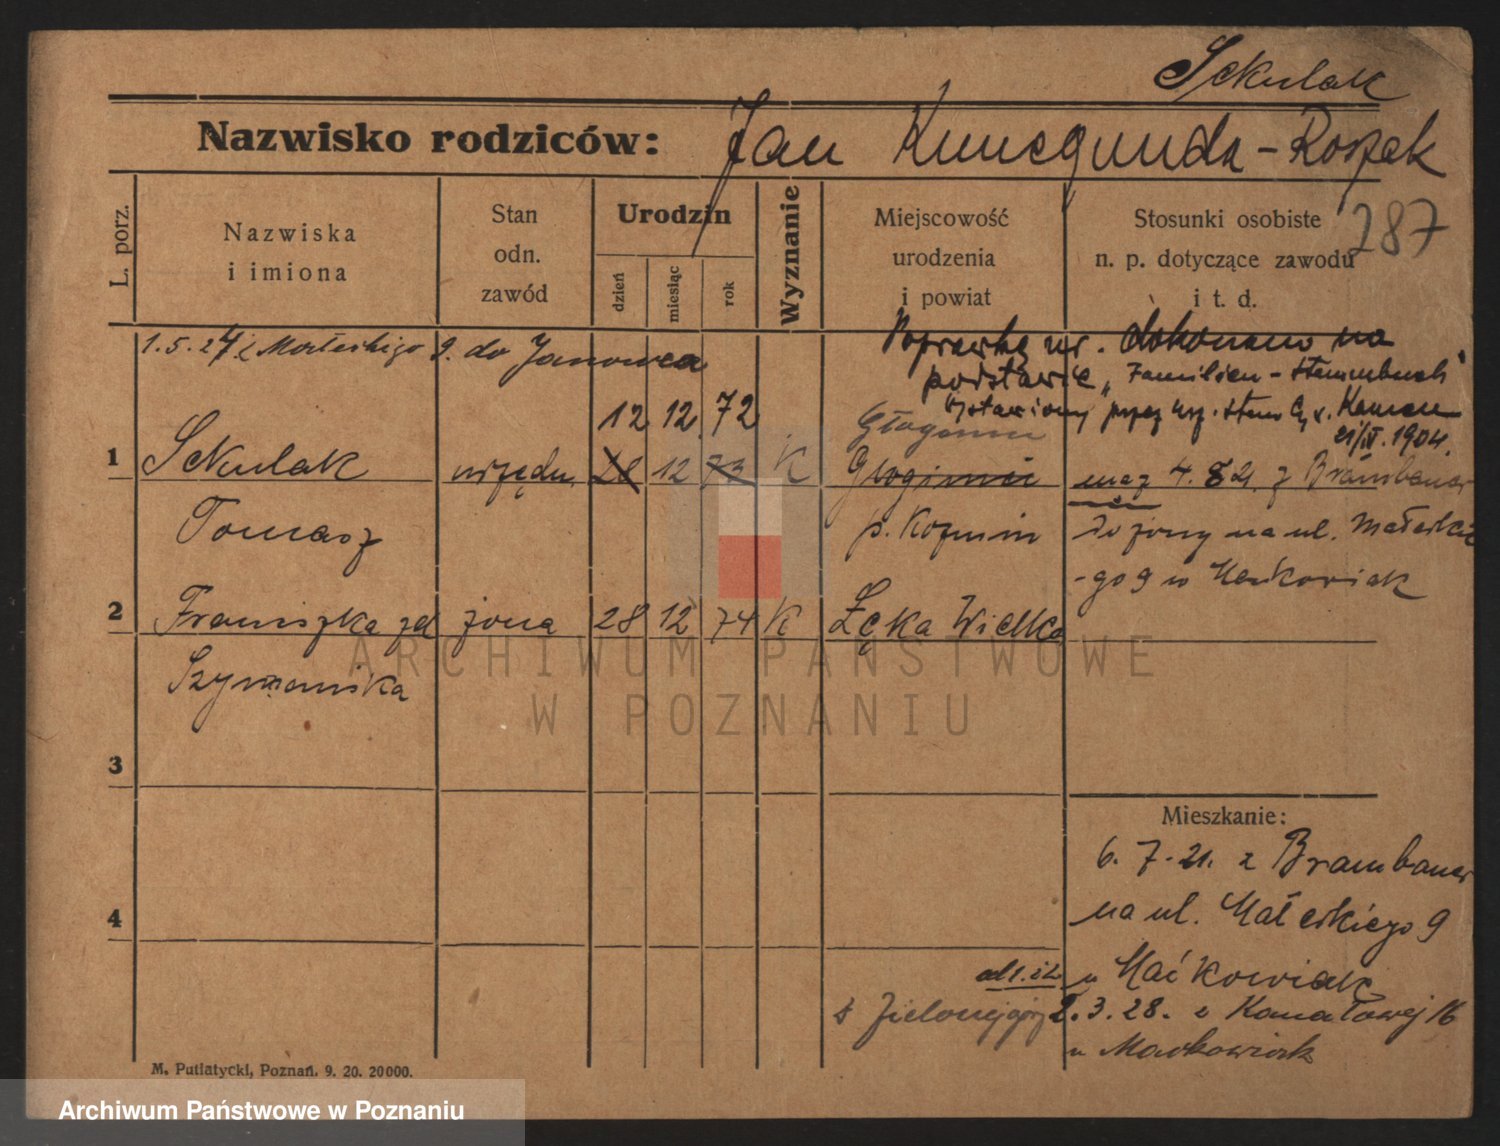 Sckulak
Nazwisko rodziców: Jan Kunegunda - Roszak
287
L. porz.
Nazwiska
i imiona
Stan
odn.
zawód
Urodzin
dzień
miesiąc
rok
Wyznanie
Miejscowość
urodzenia
i powiat
Stosunki osobiste
n. p. dotyczące zawodu
i t. d.
1.5.24 z Małeckiego 9. do Janowca
Poprawkę ur. dokonano na
podstawie "Familien - Stammbuch"
wystawiony przez Urz. Stanu Cyw. Kamen
21/IV. 1904.
12 12 72
Głogowa
1 Sekulak urzędn. 28 12 73 K
mąż 4. 8 21. z Brambauer
Tomasz p. Kozmin do żony na ul. Małeckie
-go 9 u Maćkowiak
2 Franciszka zd żona 28 12 74 K Łęka Wielka
Szymańska
3
4
Mieszkanie:
6. 7. 21. z Brambauer
na ul. Małeckiego 9
u Maćkowiak
2.3.28. z Kanałowej 16
u Maćkowiak
M. Putiatycki, Poznań. 9. 20. 20000.
ARCHIWUM PAŃSTWOWE
W POZNANIU
Archiwum Państwowe w Poznaniu